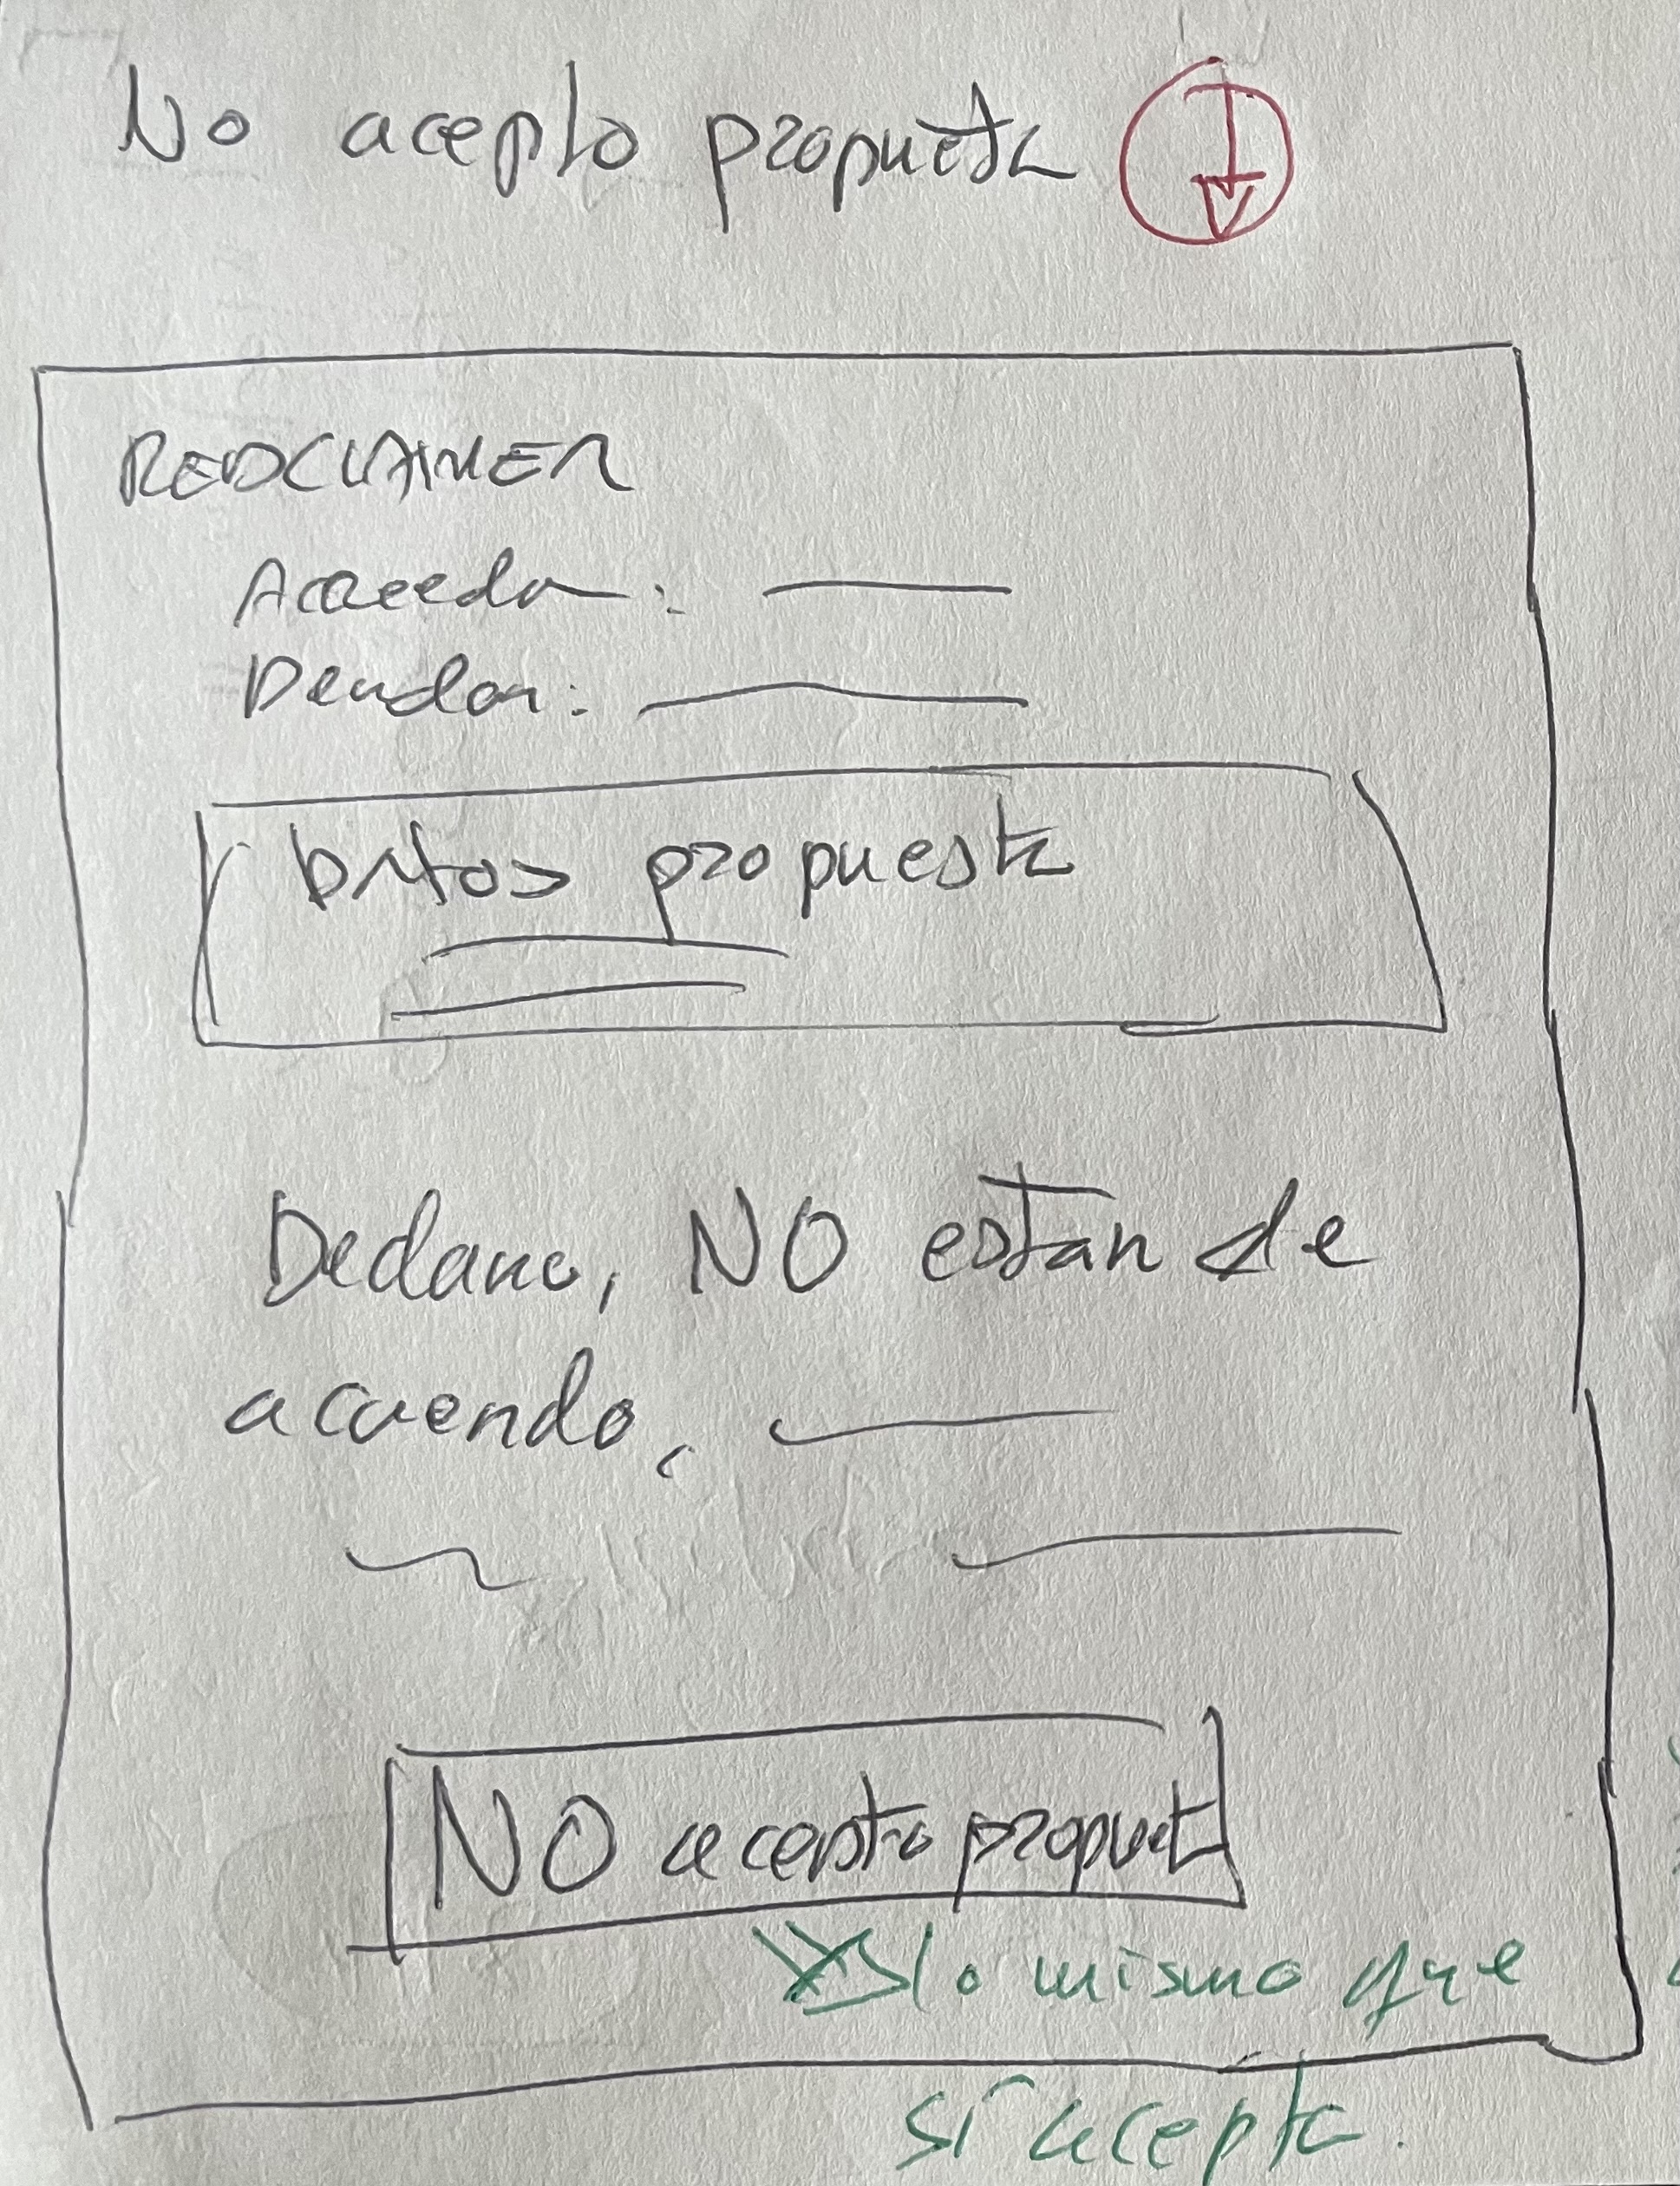 No acepto propueta
REDCLAIMER
Acreedor:
Deudor:
Datos propuesta
Declaro, NO estar de
acuerdo,
NO acepto propuet
lo mismo que
si acepta.